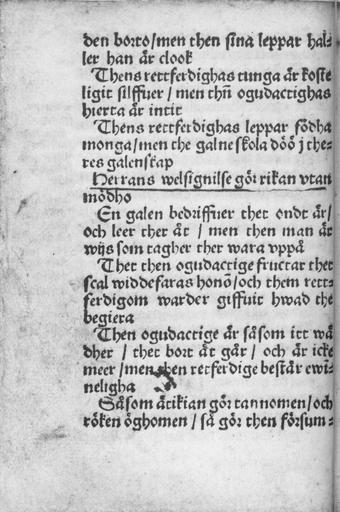 den borto/men then sina leppar hal⸗
ler han är clook
Thens rettferdighas tunga är koste
ligit silffuer / men thũ ogudactighas
hierta är intit
Thens rettferdighas leppar födha
monga/men the galne skola döö j the⸗
res galenskap
Herrans welsignilse gör rikan vtan
mödho
En galen bedriffuer thet ondt är/
och leer ther åt / men then man är
wijs som tagher ther wara vppå
Thet then ogudactige fructar thet
scal widdefaras honõ/och them rett⸗
ferdigom warder giffuit hwad the
begiera
Then ogudactige är såsom itt wä
dher / thet bort är går / och är icke
meer / men then retferdige består ewi⸗
neligha
Såsom ätikian gör tannomen/och
röken öghomen / så gör then försum⸗